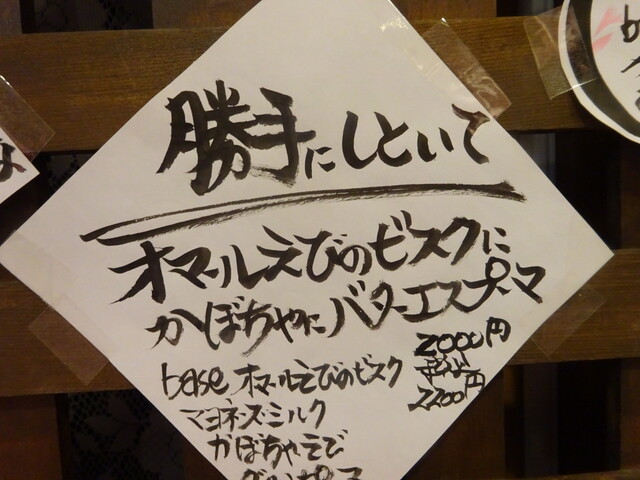 勝手にしといて
オマールえびのビスクに
かぼちゃにバターエスプーマ
2000円
税込
2200円
base オマールえびのビスク
マヨネーズミルク
かぼちゃえび